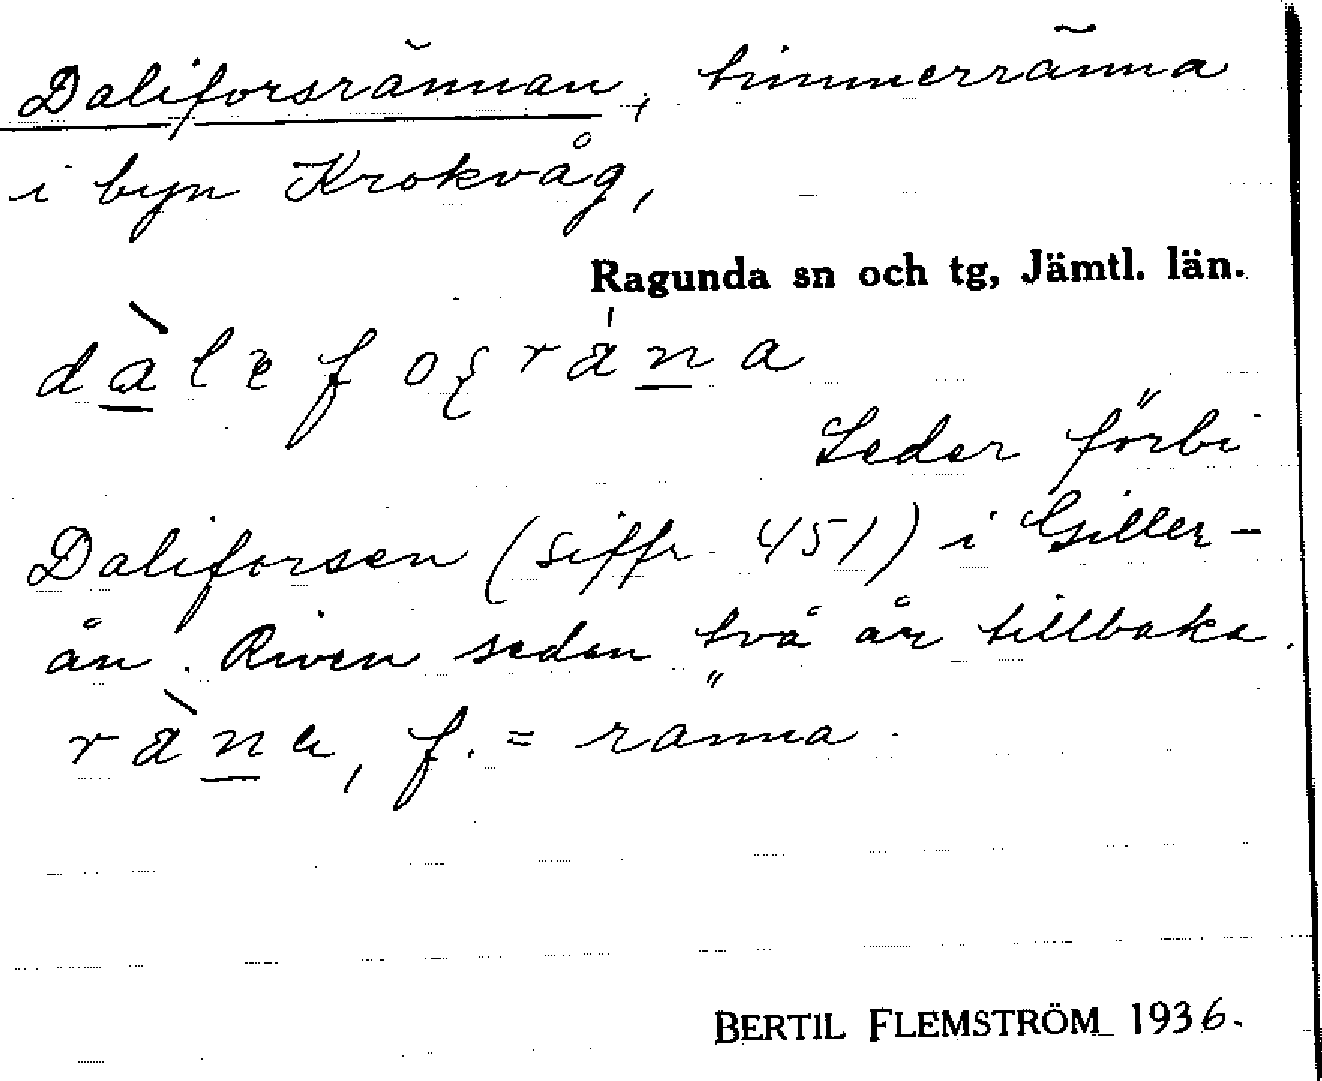 Daliforsrännan, timmerränna
i byn Krokvåg,
Ragunda sn och tg, Jämtl. län.
Leder förbi
Daliforsen (siffr. 451) i Giller-
ån. Riven sedan två år tillbaka.
f. = ränna.
BERTIL FLEMSTRÖM 1936.